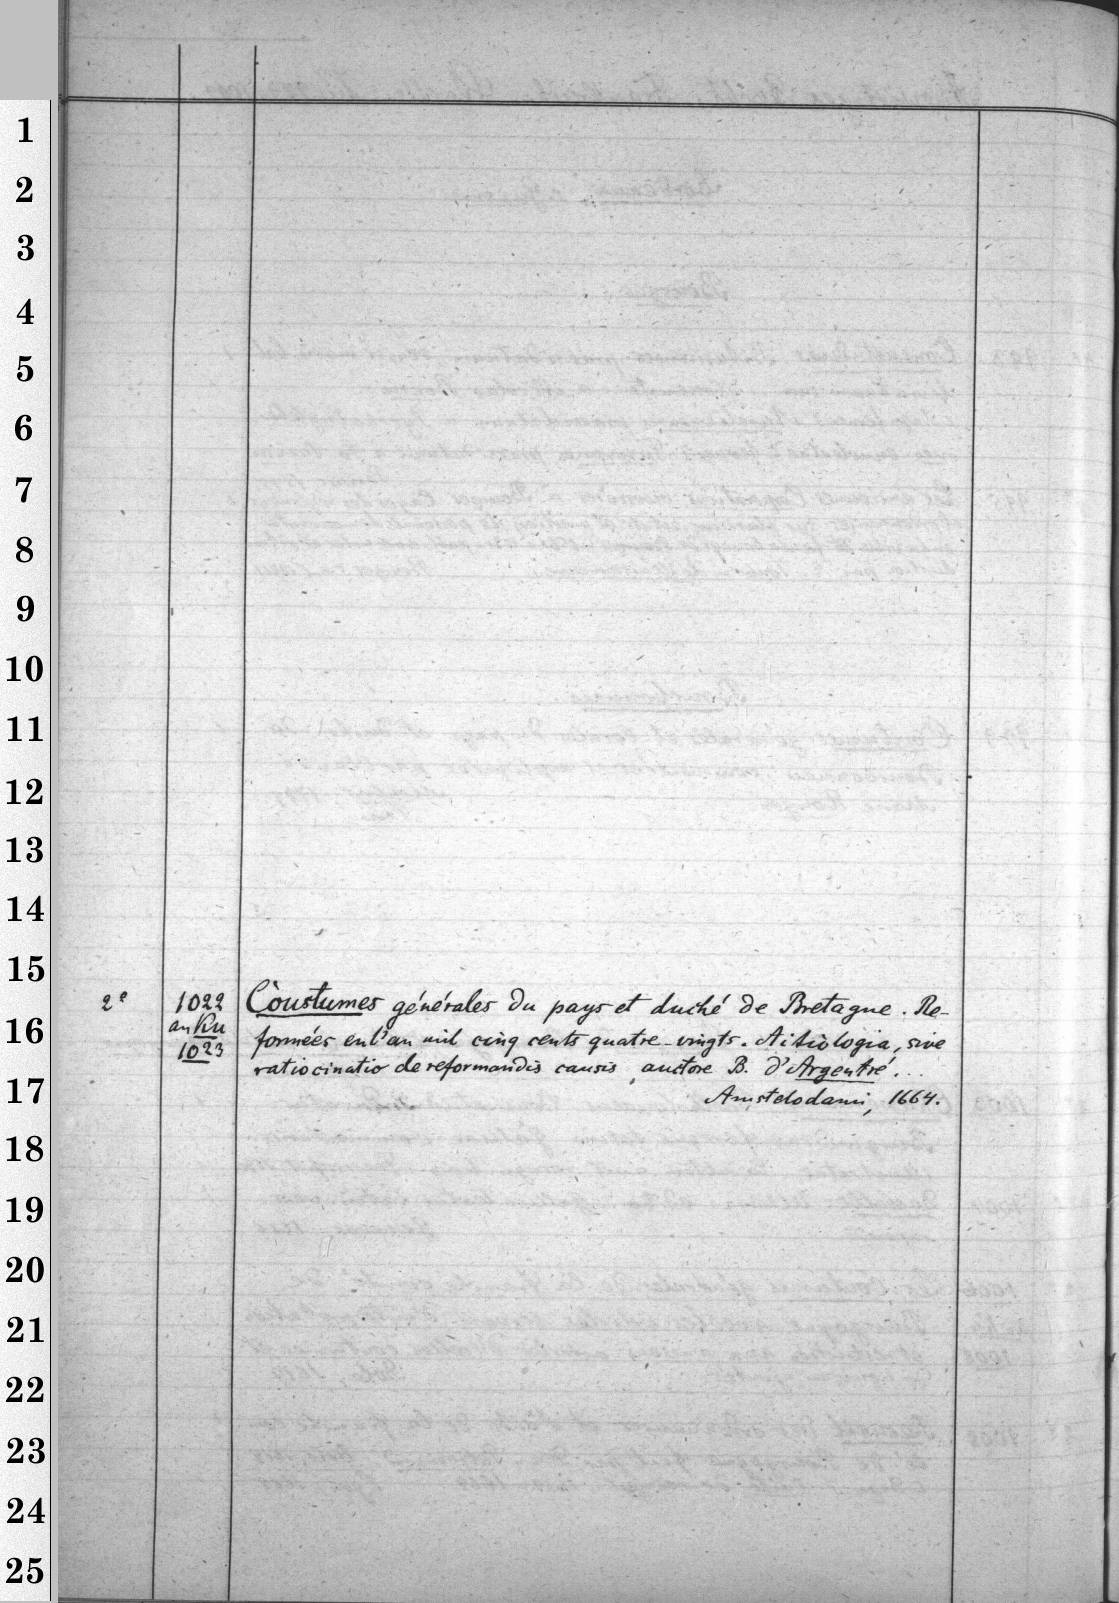 1
2
3
4
5
6
7
8
9
10
11
12
13
14
15
2º 1022 Coustumes générales du pays et duché de Bretagne. Re-
16
formées en l'an mil cinq cents quatre-vingts. Aitiologia, sive
1023 ratiocinatio de reformandis causis, auctore B. d'Argentré...
17
Amstelodami, 1664.
18
19
20
21
22
23
24
25